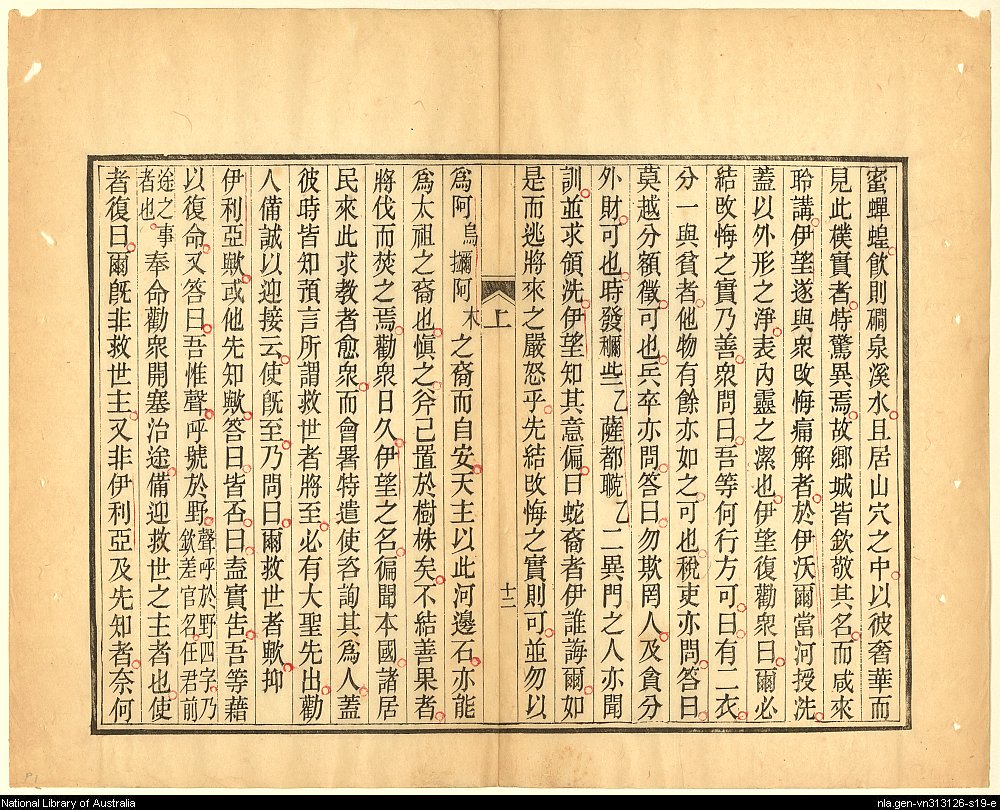 蜜蟬蝗飲則礀泉溪水且居山穴之中以彼奢華而
見此樸實者特驚異焉故鄉城皆欽敬其名而咸來
聆講伊望遂與衆攺悔痛解者於伊沃爾當河授洗
蓋以外形之淨表內靈之潔也伊望復勸衆曰爾必
結攺悔之實乃善衆問曰吾等何行方可曰有二衣
分一與貧者他物有餘亦如之可也稅吏亦問答曰
莫越分額徵可也兵卒亦問答曰勿欺罔人及貪分
外財可也時發穪些乙薩都聭乙二異門之人亦聞
訓並求領洗伊望知其意偏曰蛇裔者伊誰誨爾如
是而逃將來之嚴怒乎先結攺悔之實則可並勿以
上
十二
爲阿烏攡阿木之裔而自安天主以此河邊石亦能
爲太祖之裔也愼之斧己置於樹株矣不結善果者
將伐而焚之焉勸衆日久伊望之名徧聞本國諸居
民來此求教者愈衆而會署特遣使咨詢其爲人蓋
彼時皆知預言所謂救世者將至必有大聖先出勸
人備誠以迎接云使旣至乃問曰爾救世者歟抑
伊利亞歟或他先知歟答曰皆否曰盍實吿吾等藉
以復命又答曰吾惟聲呼號於野聲呼於野四字乃欽差官名任君前
途之事者也奉命勸衆開塞治途備迎救世之主者也使
者復曰爾旣非救世主又非伊利亞及先知者奈何
P1
National Library of Australia
nla.gen-vn313126-s19-e